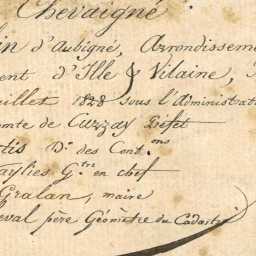 Chevaigné
in d'Aubigné, Arrondisseme
ent d'Ille & Vilaine,
uillet 1828 sous l'Administrat
omte de Curzay Préfet
tis D.r des Cont.ons
aylies G.tre en chef
Gralan, maire
eval père Géomètre du Cadastre